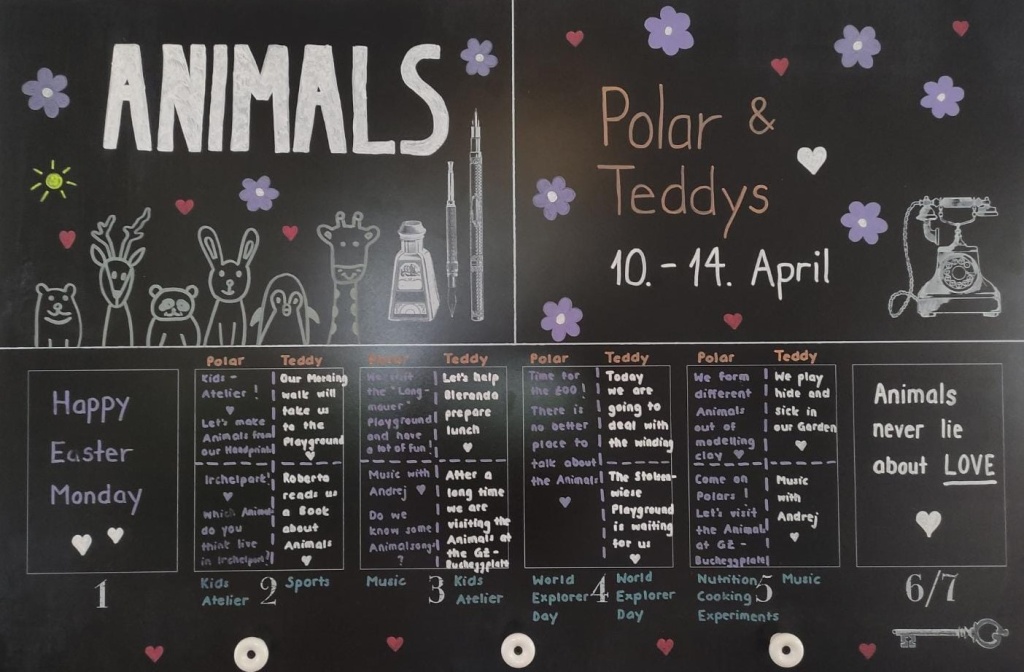 ANIMALS
Polar &
Teddys
10. - 14. April
Happy
Easter
Monday
1
Polar
Kids -
Atelier !
Let's make
Animals from
our Handprint!
Irchelpark!
Which Animal
do you
think live
in Irchelpark?
Kids
Atelier
Teddy
Our Morning
walk will
take us
to the
Playground
Roberto
reads us
a Book
about
Animals
Sports
2
the "Long-
mauer"
Playground
and have
a lot of fun!
Music with
Andrej
Do we
know some
Animalsongs
?
Music
Teddy
Let's help
Blerando
prepare
lunch
After a
long time
we are
visiting the
Animals at
the GZ-
Bucheggplatz
Kids
Atelier
3
Polar
Time for
the ZOO!
There is
no better
place to
talk about
the Animals
World
Explorer
Day
Teddy
Today
we are
going to
deal with
the winding
The Stolzen-
wiese
Playground
is waiting
for us
World
Explorer
Day
4
Polar
We form
different
Animals
out of
modelling
clay
Come on
Polars !
Let's visit
the Animal
at GZ-
Bucheggplatz!
Nutrition
Cooking
Experiments
Teddy
We play
hide and
sick in
our Garden
Music
with
Andrej
Music
5
Animals
never lie
about LOVE
6/7